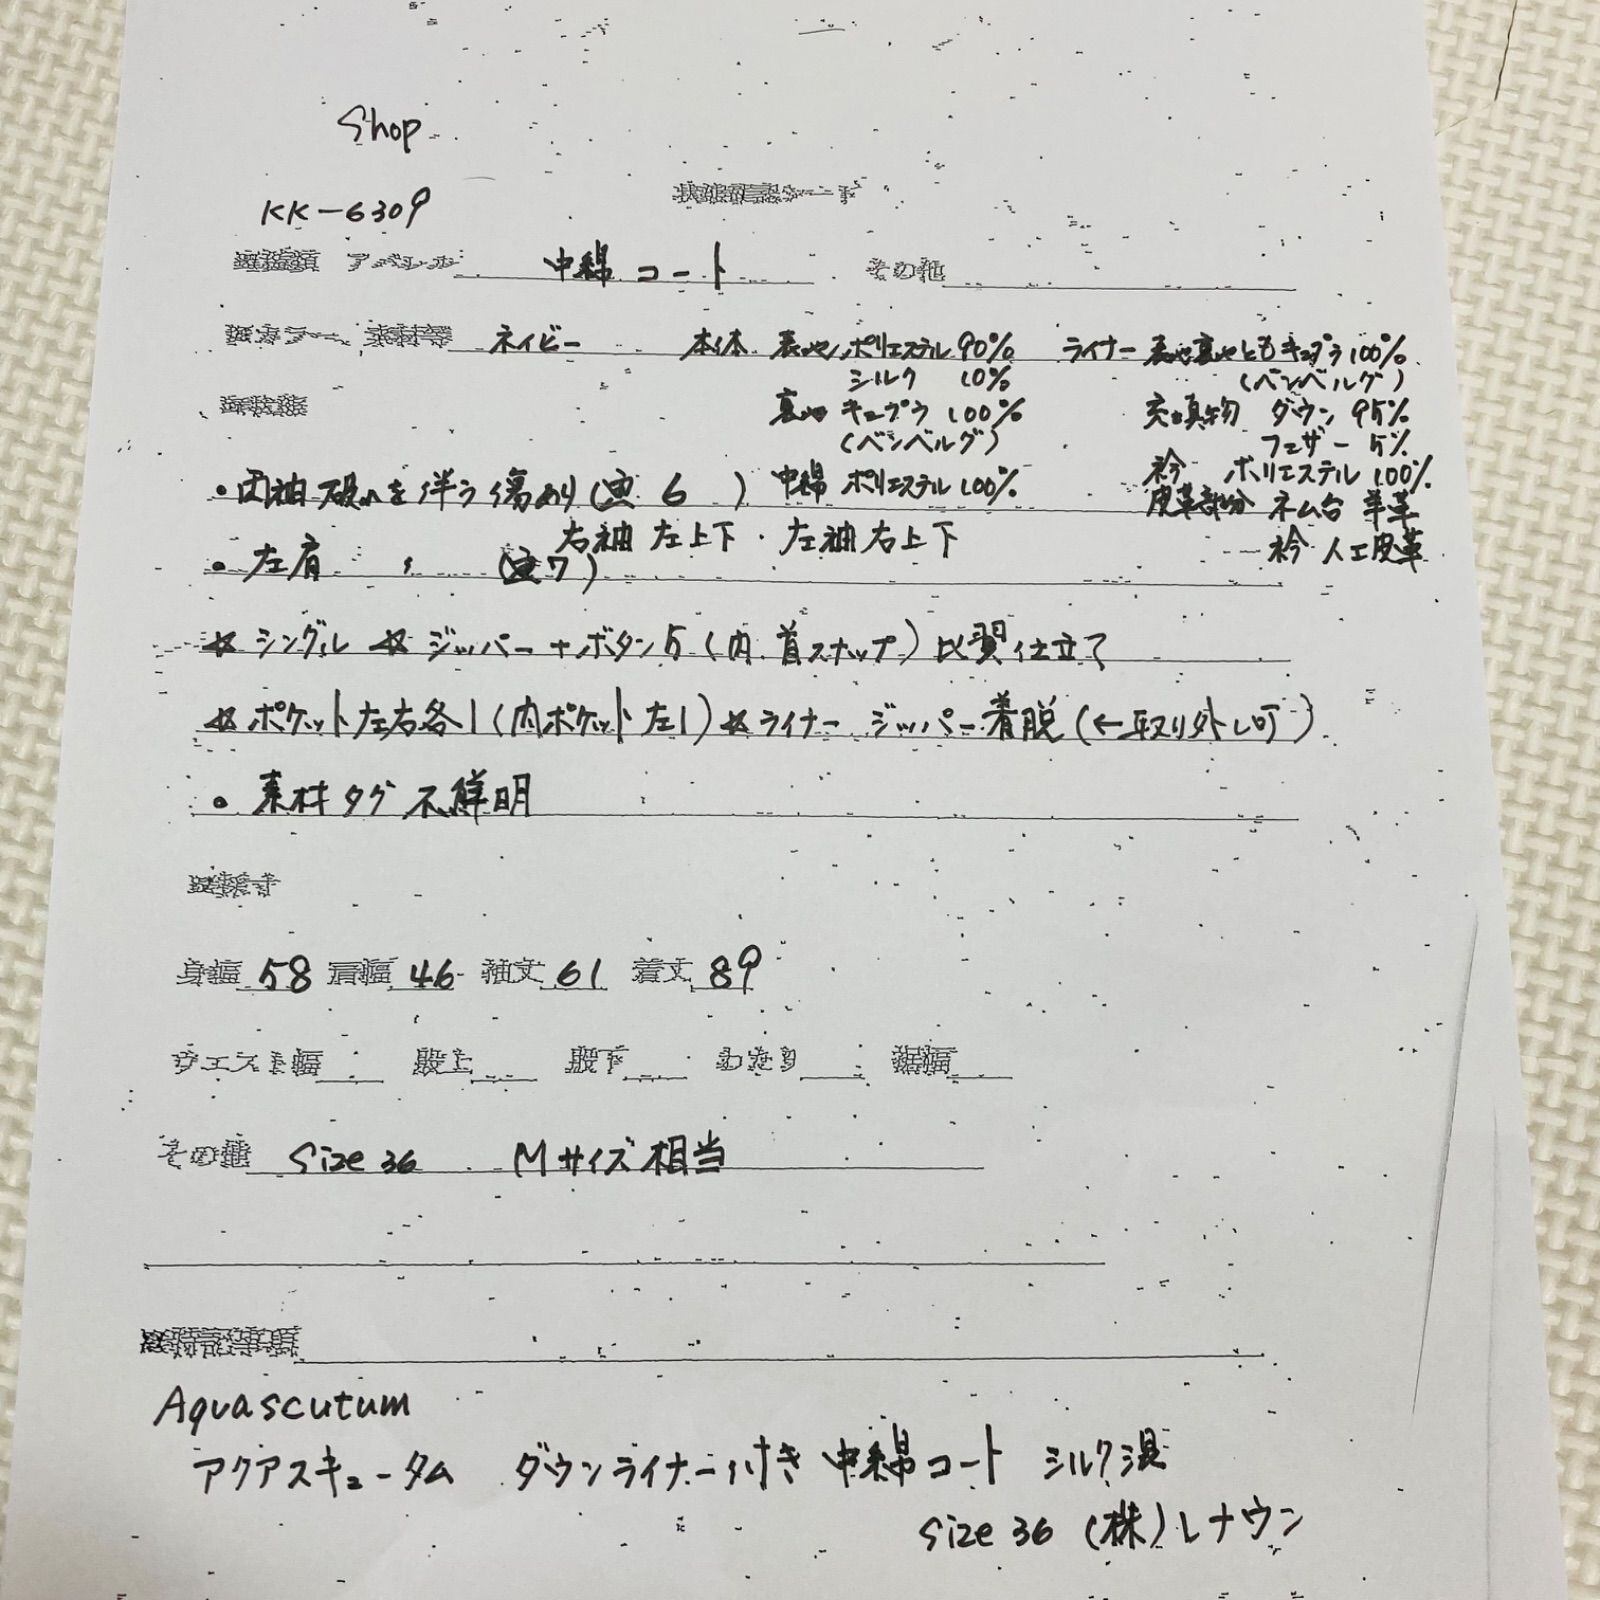 Shop
KK-6309
アパレル 中綿コート その他
カラー 素材等 ネイビー 本体 表地 ポリエステル90% ライナー 表地裏地ともキュプラ100%
シルク 10% (ベンベルグ)
裏地 キュプラ 100% 充填物 ダウン 95%
(ベンベルグ) フェザー 5%
・両袖 破れを伴う傷あり(写6) 中綿 ポリエステル100% 衿 ポリエステル100%
皮革部分 ネム台 羊革
右袖 左上下・左袖右上下 衿 人工皮革
・左肩 〃 (写7)
☆シングル ☆ジッパー+ボタン5(内 首スナップ)比翼仕立て
☆ポケット左右各1(内ポケット左1)☆ライナー ジッパー着脱(←取り外し可)
・素材タグ不鮮明
身幅 58 肩幅 46 袖丈 61 着丈 89
ウエスト幅 股上 股下 わたり 裾幅
その他 Size 36 Mサイズ相当
特記事項
Aquascutum
アクアスキュータム ダウンライナー付き 中綿コート シルク混
size 36 (株)レナウン